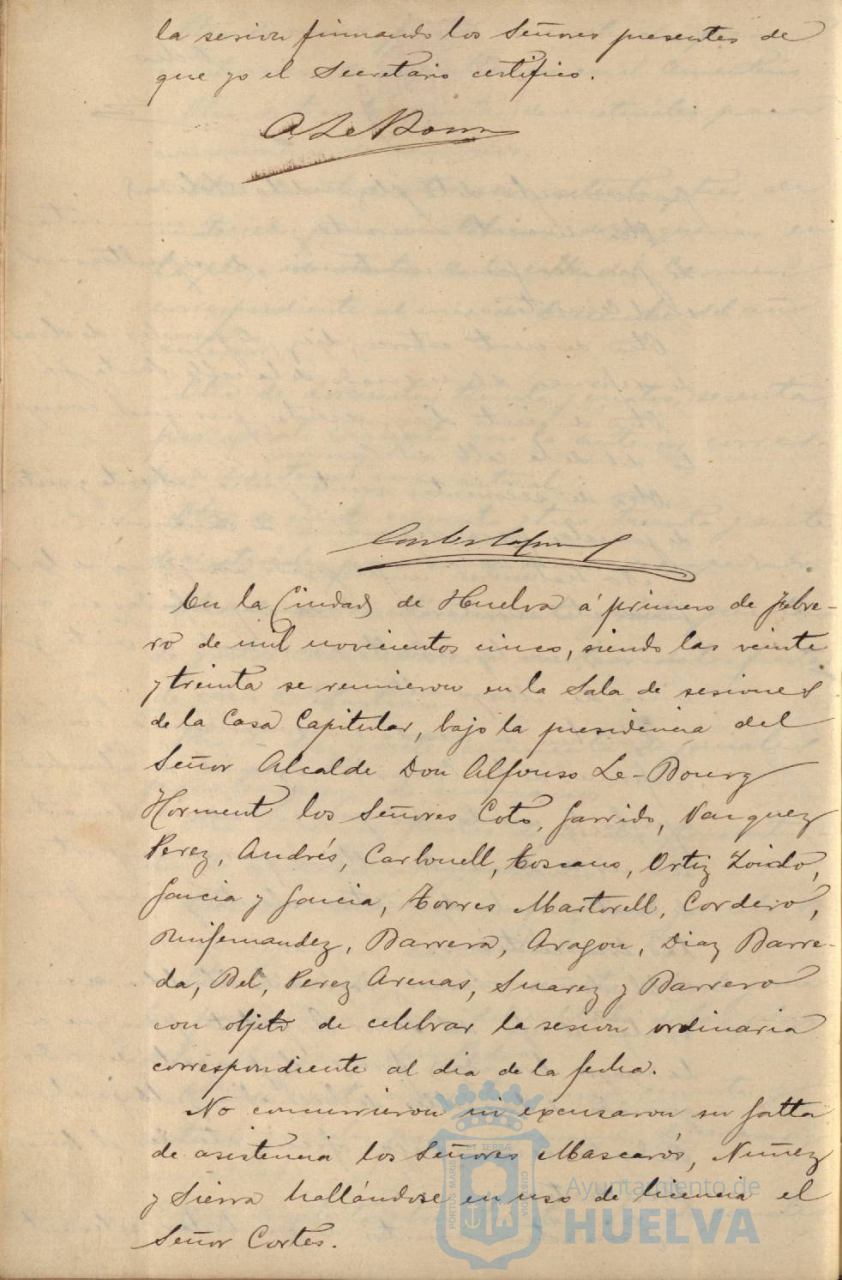 la sesion firmando los Señores presentes de
que yo el Secretario certifico.
En la Ciudad de Huelva á primero de Febre-
ro de mil novecientos cinco, siendo las veinte
y treinta se reunieron en la Sala de sesiones
de la Casa Capitular, bajo la presidencia del
Señor Alcalde Don Alfonso Le-Bourg
Horment los Señores Coto, Garrido, Vazquez
Perez, Andrés, Carbonell, Toscano, Ortiz Zoido,
Garcia y Garcia, Torres Martorell, Cordero,
Ruifernandez, Barrera, Aragon, Diaz Barre-
da, Bel, Perez Arenas, Suarez y Barrero
con objeto de celebrar la sesion ordinaria
correspondiente al dia de la fecha.
No concurrieron ni excusaron su falta
de asistencia los Señores Mascarós, Nuñez
y Sierra hallándose en uso de licencia el
Señor Cortes.
Ayuntamiento de
HUELVA